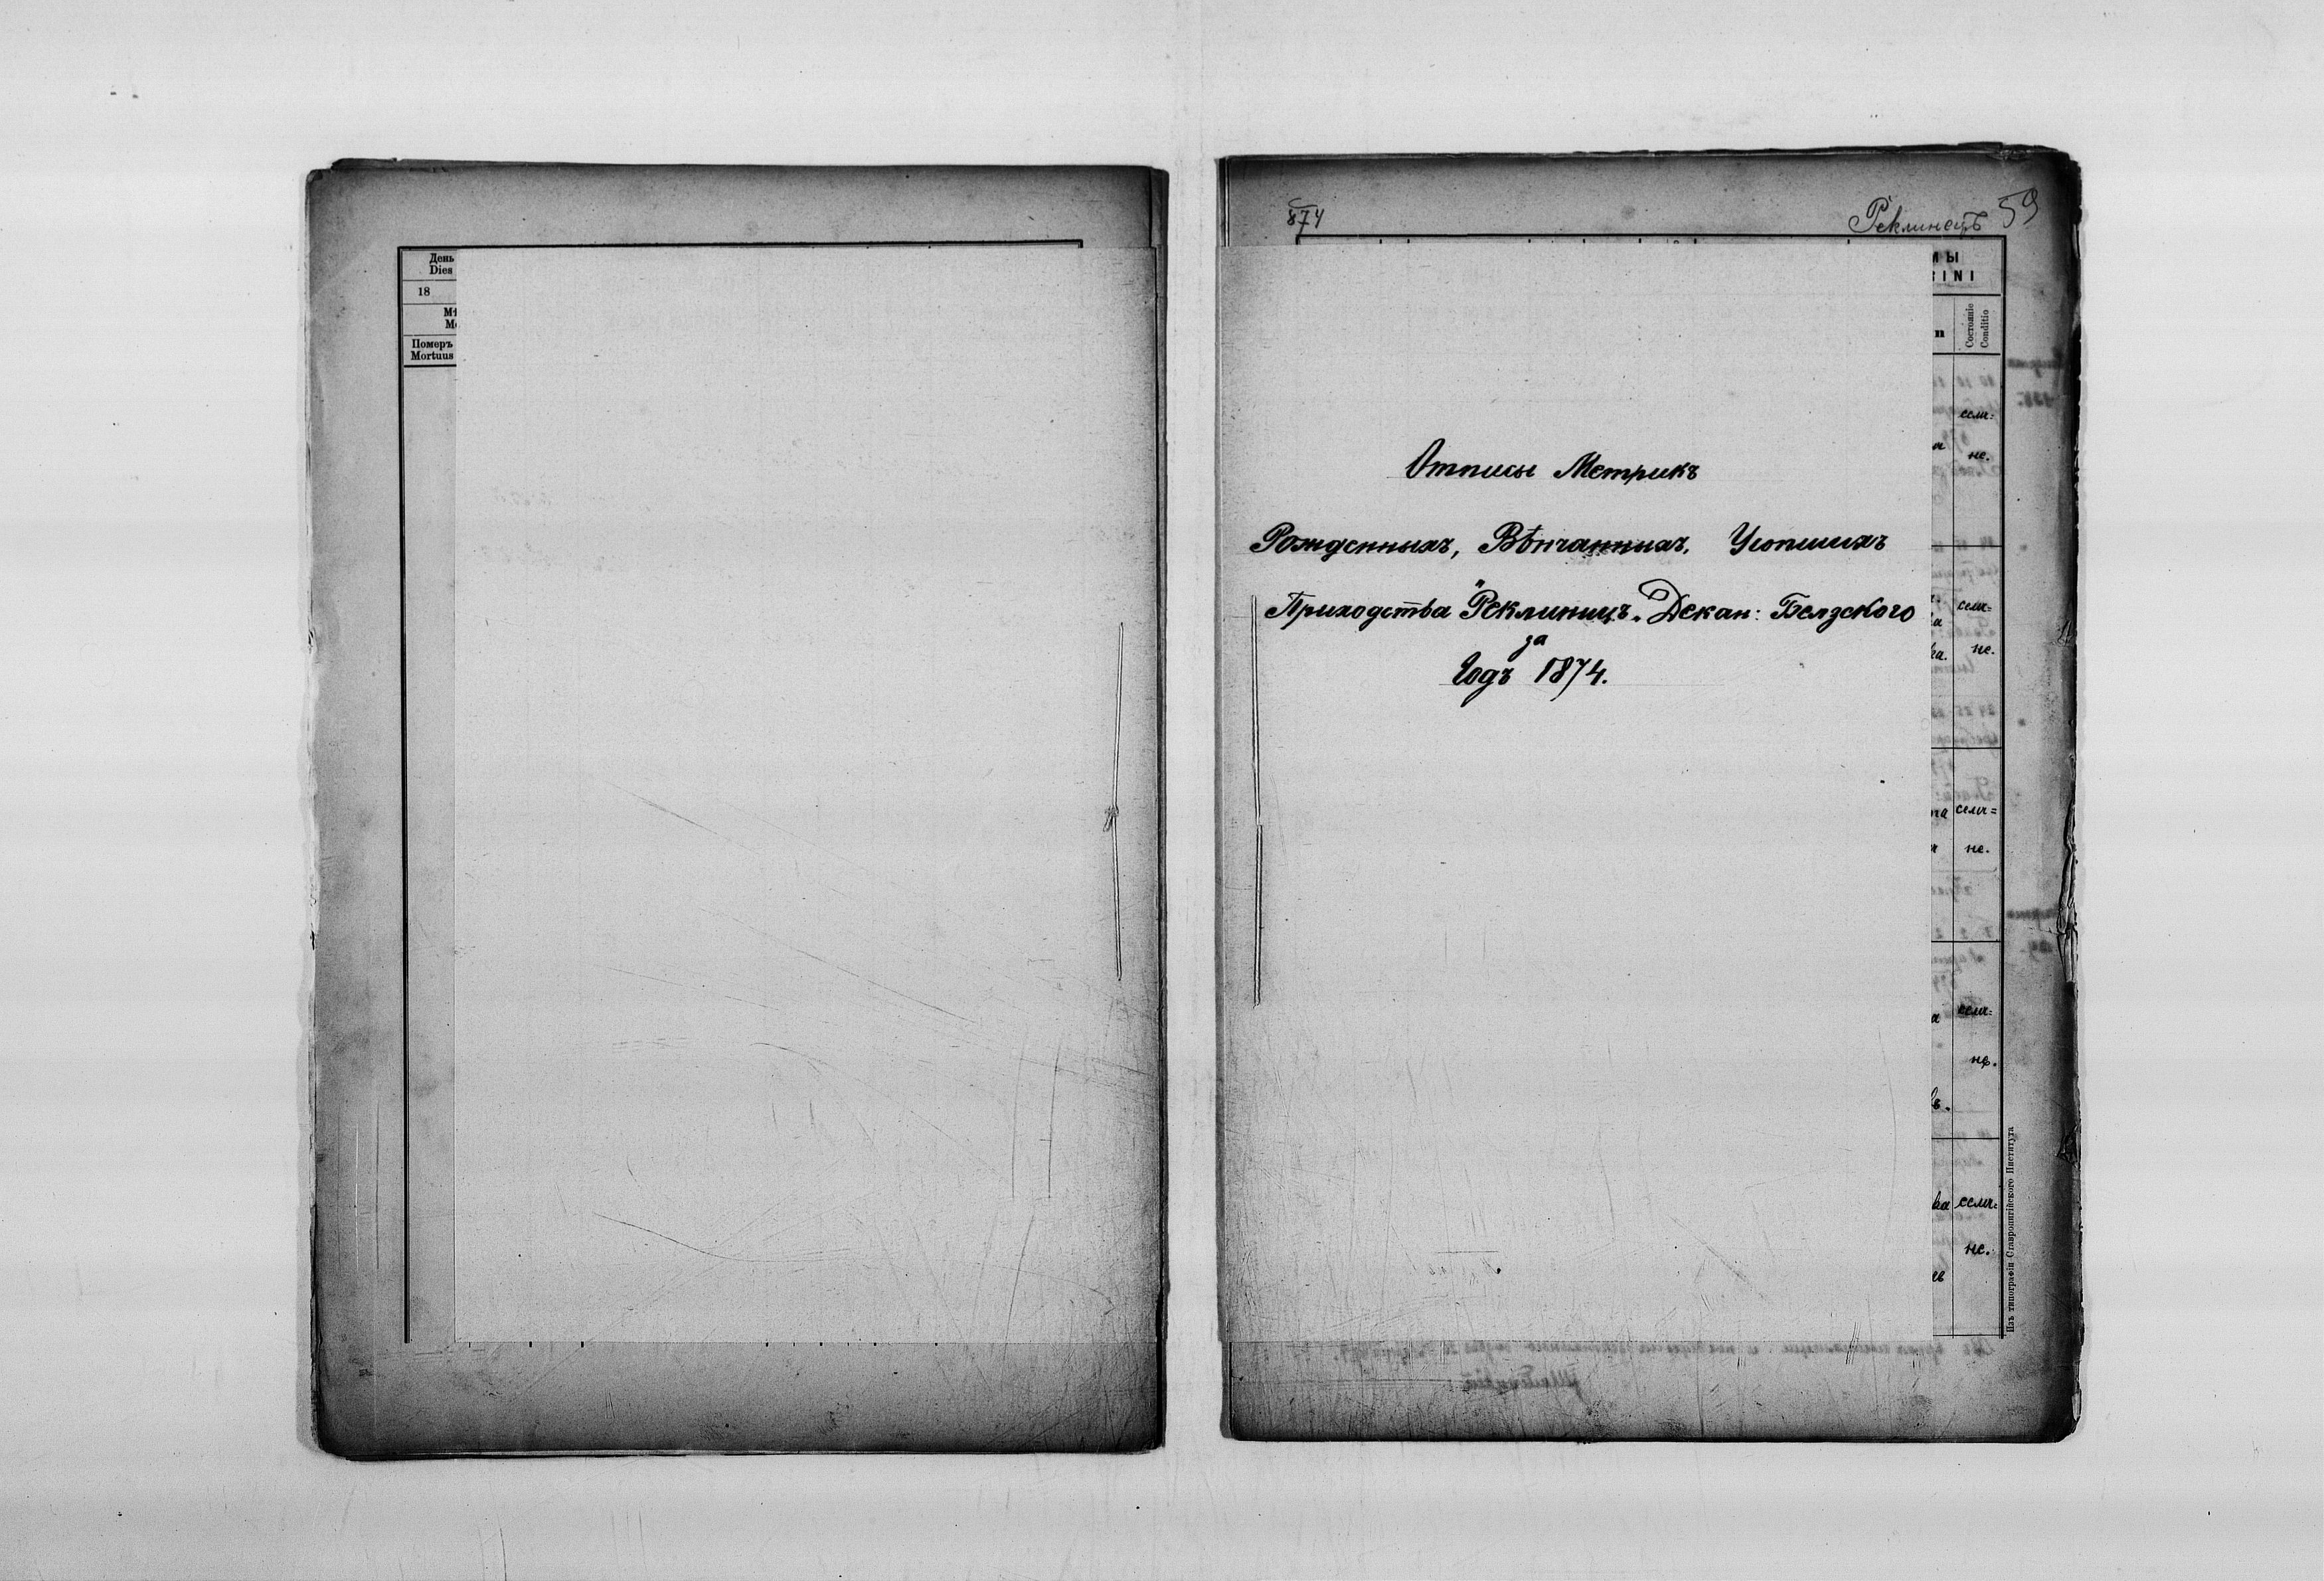 День
Dies
18
Померъ
Mortuus
874
Реклинець 59
Отписы Метрикъ
Рожденныхъ, Вѣнчанныхъ, Усопшихъ
Приходства "Реклинищъ" Декан: Белзского
за
Годъ 1874.
МЫ
INI
Состояніе
Conditio
селя=
не.
селя=
не.
селя=
не.
селя=
не.
селя=
не.
Изъ типографіи Ставропигійского Института